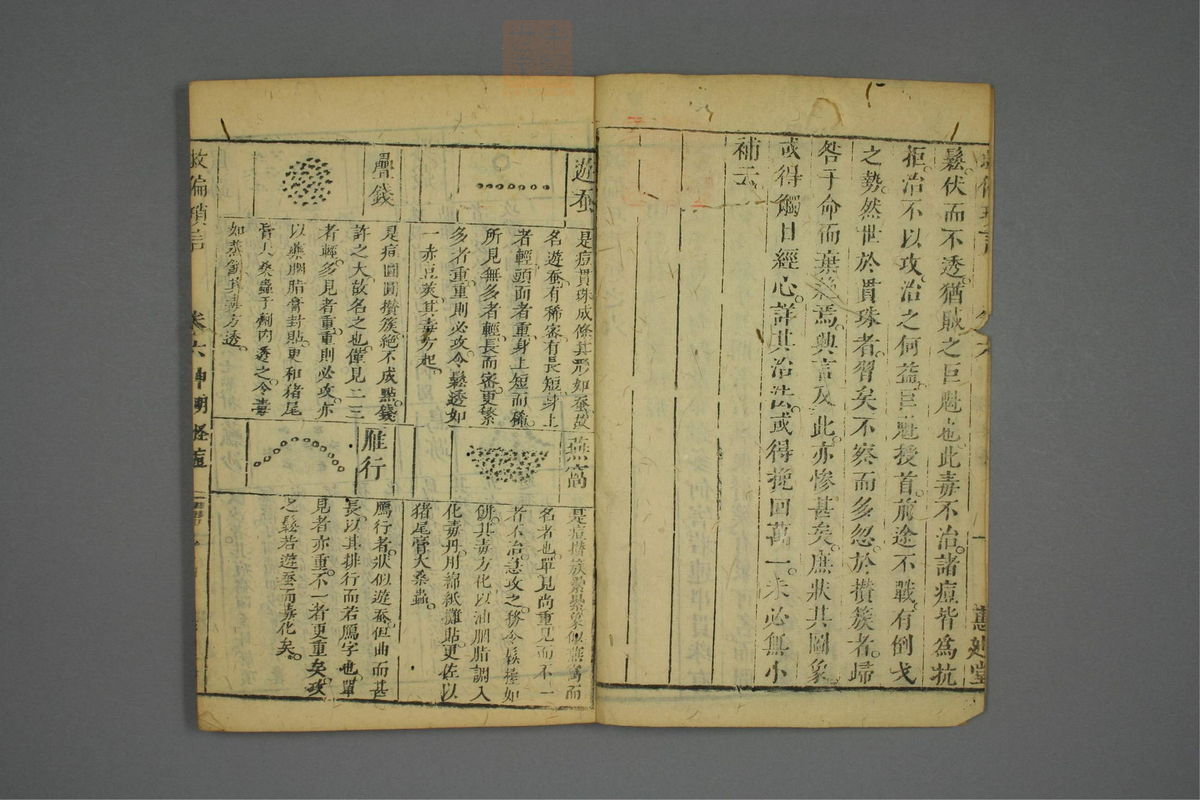 鬆伏而不透猶賊之巨魁也此毒不治諸痘皆為抗
拒治不以攻治之何益巨魁授首前途不戰有倒戈
之勢然世於貫珠者習矣不察而多忽於攢簇者歸
咎于命而棄絕焉興言及此亦慘甚矣庶狀其圖象
或得觸目經心詳其治法或得挽回萬一未必無小
補云
遊蚕
是痘貫珠成條其形如蚕故
名遊蚕有稀密有長短身上
者輕頭面者重身上短而稀
所見無多者輕長而密更繁
多者重重則必攻令鬆透如
一赤豆莢其毒方起
疊錢
是痘圓圓攢簇絕不成點錢
許之大故名之也僅見二三
者輕多見者重重則必攻亦
以藥胭脂膏封貼更和猪尾
膏大桑蟲于劑內透之令毒
如蒸餅其毒方透
燕窩
是痘攢簇纍纍象似燕窩而
名者也單見尚重見而不一
者不治急攻之務令鬆極如
餅其毒方化以油胭脂調入
化毒丹用綿紙攤貼更佐以
猪尾膏大桑蟲
雁行
鴈行者狀似遊蚕但曲而甚
長以其排行而若鴈字也單
見者亦重不一者更重矣攻
之鬆若遊蚕而毒化矣
救偏瑣言 卷六 神明怪痘